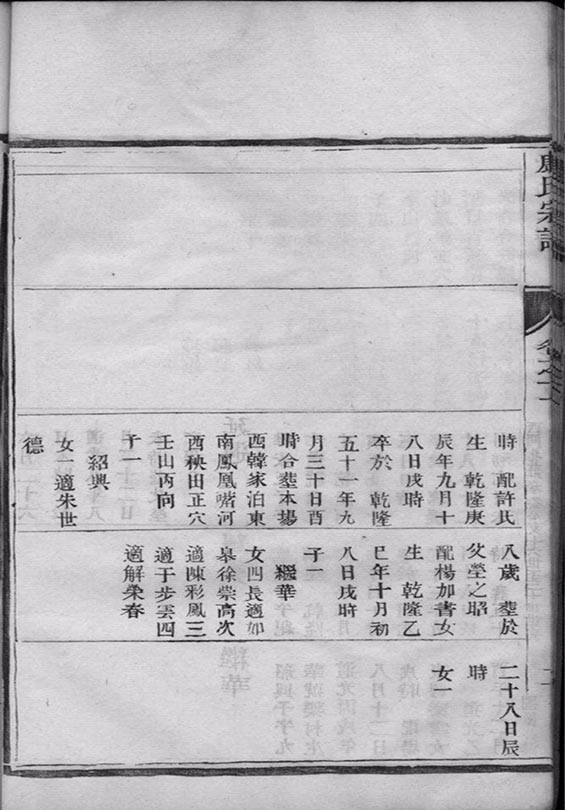 氏宗譜
卷之
時 配許氏
生 乾隆庚
辰年九月十
八日戌時
卒於 乾隆
五十一年九
月三十日酉
時合塟本塲
西韓家泊東
南鳳凰嘴河
西秧田正穴
壬山丙向
子一
紹興
女一 適朱世
德
八歲 塟於
父塋之昭
配楊加書女
生 乾隆乙
巳年十月初
八日戌時
子一
繼華
女四長適如
皋徐崇高次
適陳彩鳳三
適于步雲四
適解榮春
二十八日辰
時
女一